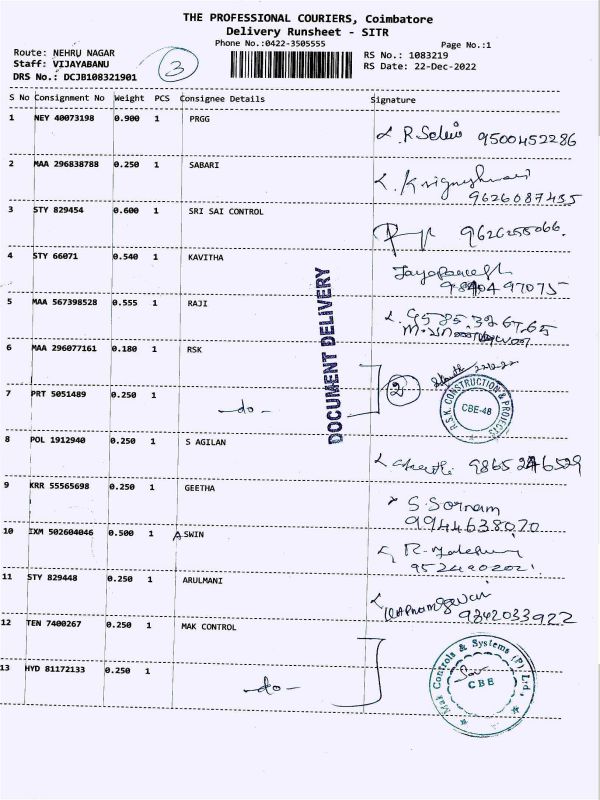 THE PROFESSIONAL COURIERS, Coimbatore
Delivery Runsheet - SITR
Phone No.:0422-3505555
Page No.:1
Route: NEHRU NAGAR
Staff: VIJAYABANU
DRS No.: DCJB108321901
3
RS No.: 1083219
RS Date: 22-Dec-2022
S No Consignment No Weight PCS Consignee Details Signature
1 NEY 40073198 0.900 1 PRGG
9500452286
2 MAA 296838788 0.250 1 SABARI
9626087435
3 STY 829454 0.600 1 SRI SAI CONTROL
9626255066.
4 STY 66071 0.540 1 KAVITHA
5 MAA 567398528 0.555 1 RAJI
DOCUMENT DELIVERY
6 MAA 296077161 0.180 1 RSK
2
R.S.K. CONSTRUCTION & PROJECTS
CBE-48
7 PRT 5051489 0.250 1 -do-
8 POL 1912940 0.250 1 S AGILAN
9 KRR 55565698 0.250 1 GEETHA
S. Sornam
9944638070
10 IXM 502604046 0.500 1 ASWIN
11 STY 829448 0.250 1 ARULMANI
9842033922
12 TEN 7400267 0.250 1 MAK CONTROL
Mak Controls & Systems (P) Ltd.,
CBE
13 HYD 81172133 0.250 1 -do-